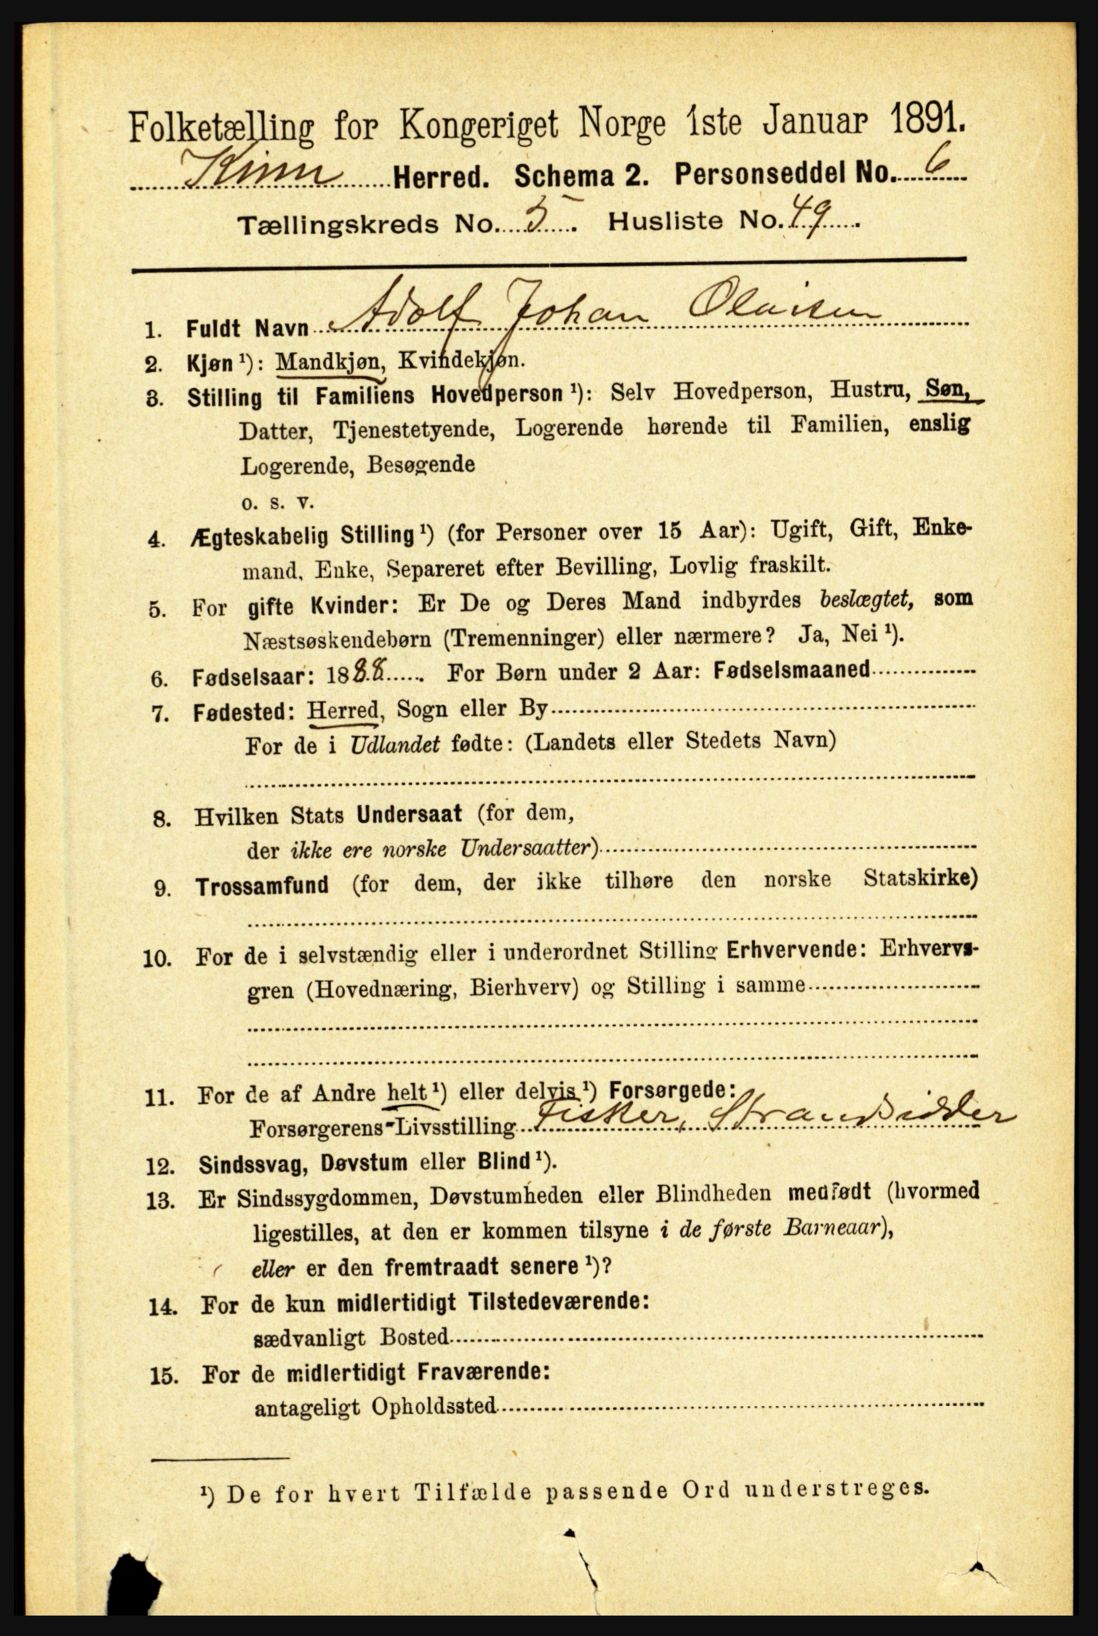 Folketælling for Kongeriget Norge 1ste Januar 1891.
Kinn Herred. Schema 2. Personseddel No. 6
Tællingskreds No. 5. Husliste No. 49.
1. Fuldt Navn Adolf Johan Olaisen
2. Kjøn ¹): Mandkjøn, Kvindekjøn.
3. Stilling til Familiens Hovedperson ¹): Selv Hovedperson, Hustru, Søn,
Datter, Tjenestetyende, Logerende hørende til Familien, enslig
Logerende, Besøgende
o. s. v.
4. Ægteskabelig Stilling ¹) (for Personer over 15 Aar): Ugift, Gift, Enke-
mand, Enke, Separeret efter Bevilling, Lovlig fraskilt.
5. For gifte Kvinder: Er De og Deres Mand indbyrdes beslægtet, som
Næstsøskendebørn (Tremenninger) eller nærmere? Ja, Nei ¹).
6. Fødselsaar: 1888. For Børn under 2 Aar: Fødselsmaaned
7. Fødested: Herred, Sogn eller By
For de i Udlandet fødte: (Landets eller Stedets Navn)
8. Hvilken Stats Undersaat (for dem,
der ikke ere norske Undersaatter)
9. Trossamfund (for dem, der ikke tilhøre den norske Statskirke)
10. For de i selvstændig eller i underordnet Stilling Erhvervende: Erhvervs-
gren (Hovednæring, Bierhverv) og Stilling i samme
11. For de af Andre helt ¹) eller delvis ¹) Forsørgede:
Forsørgerens Livsstilling Fisker, Strandsidder
12. Sindssvag, Døvstum eller Blind ¹).
13. Er Sindssygdommen, Døvstumheden eller Blindheden medfødt (hvormed
ligestilles, at den er kommen tilsyne i de første Barneaar),
eller er den fremtraadt senere ¹)?
14. For de kun midlertidigt Tilstedeværende:
sædvanligt Bosted
15. For de midlertidigt Fraværende:
antageligt Opholdssted
¹) De for hvert Tilfælde passende Ord understreges.